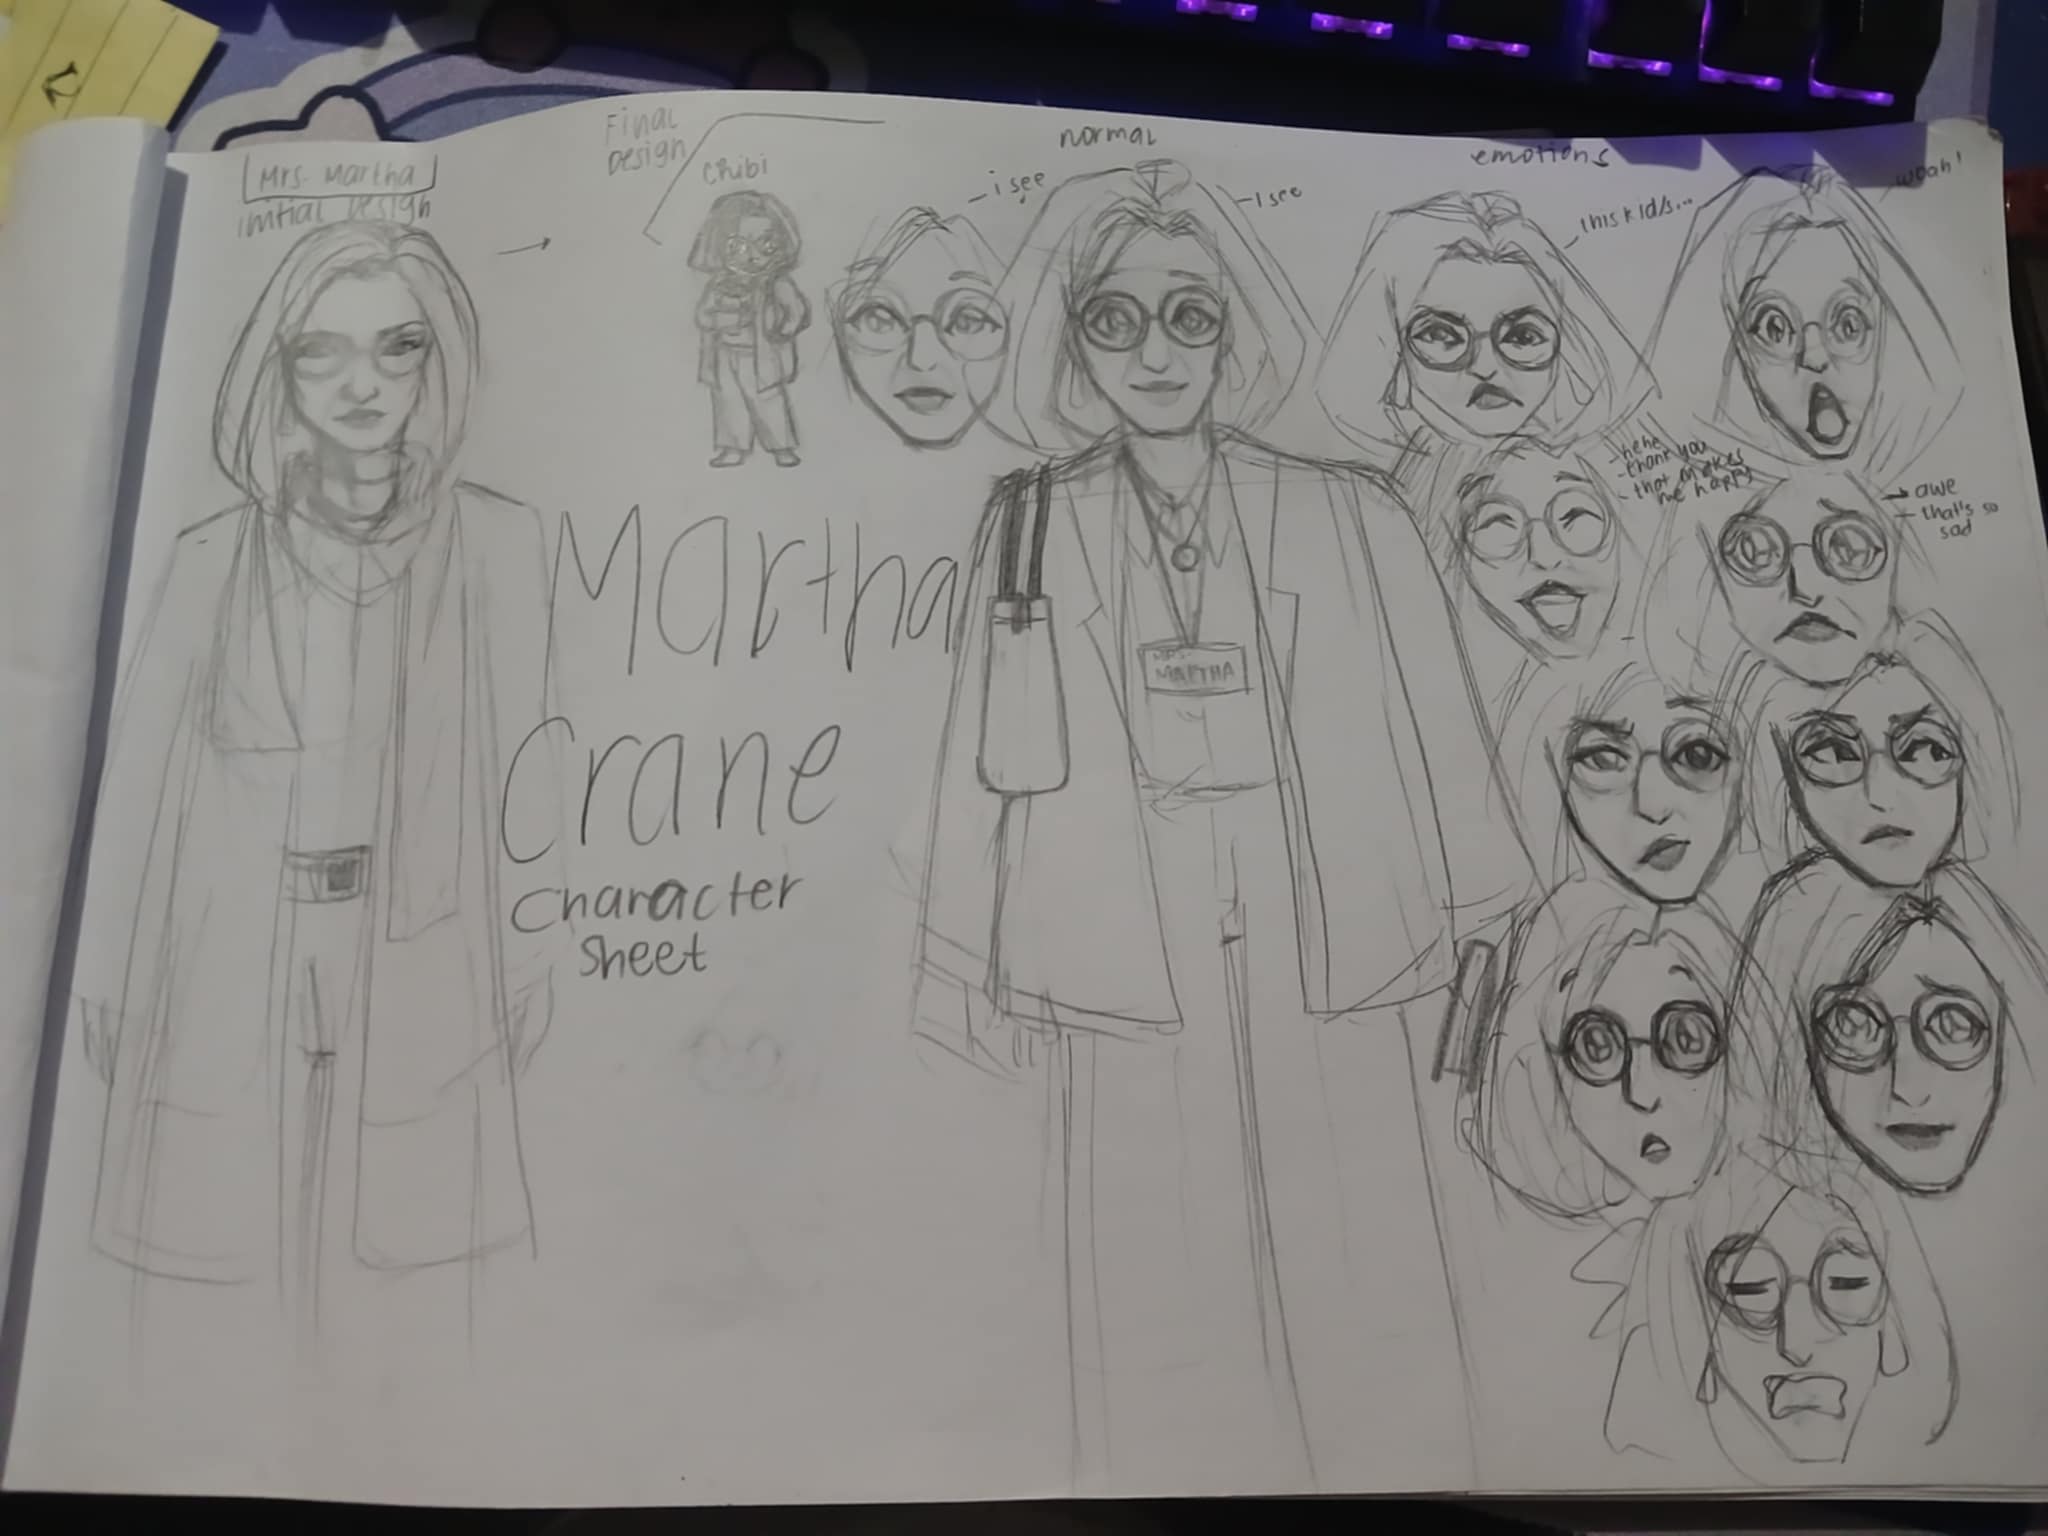 Mrs. Martha
initial Design
Final
Design
Chibi
normal
emotions
- i see
- I see
this kid/s...
woah!
- hehe
- thank you
- that makes
me happy
awe
- that's so
sad
Martha
Crane
Character
Sheet
MRS.
MARTHA